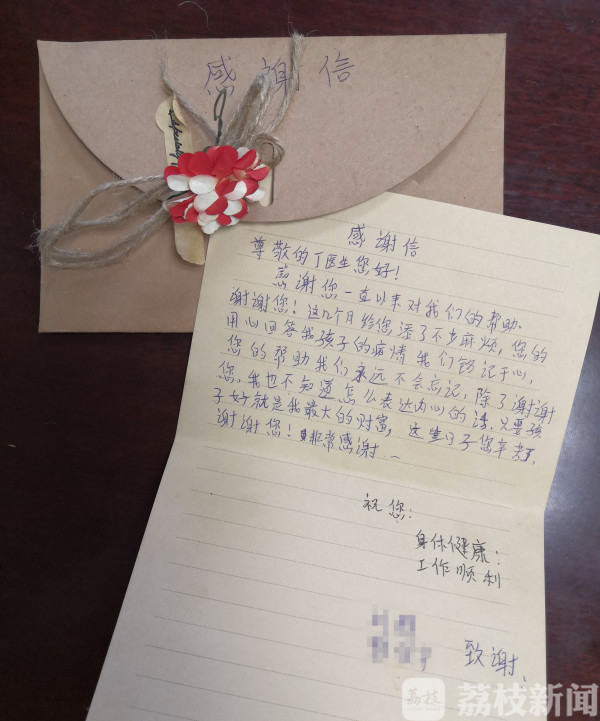 感谢信
感谢信
尊敬的丁医生您好！
感谢您一直以来对我们的帮助.
谢谢您！这几个月给您添了不少麻烦，您的
用心回答我孩子的病情我们铭记于心，
您的帮助我们永远不会忘记，除了谢谢
您，我也不知道怎么表达内心的话，只要孩
子好就是我最大的财富，这些日子您辛苦了.
谢谢您！非常感谢..
祝您：
身体健康：
工作顺利
致谢、
荔枝
荔枝新闻